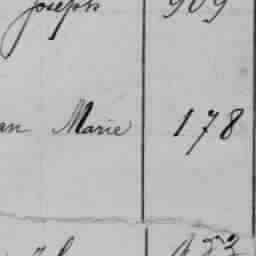 Joseph 909
an Marie 178